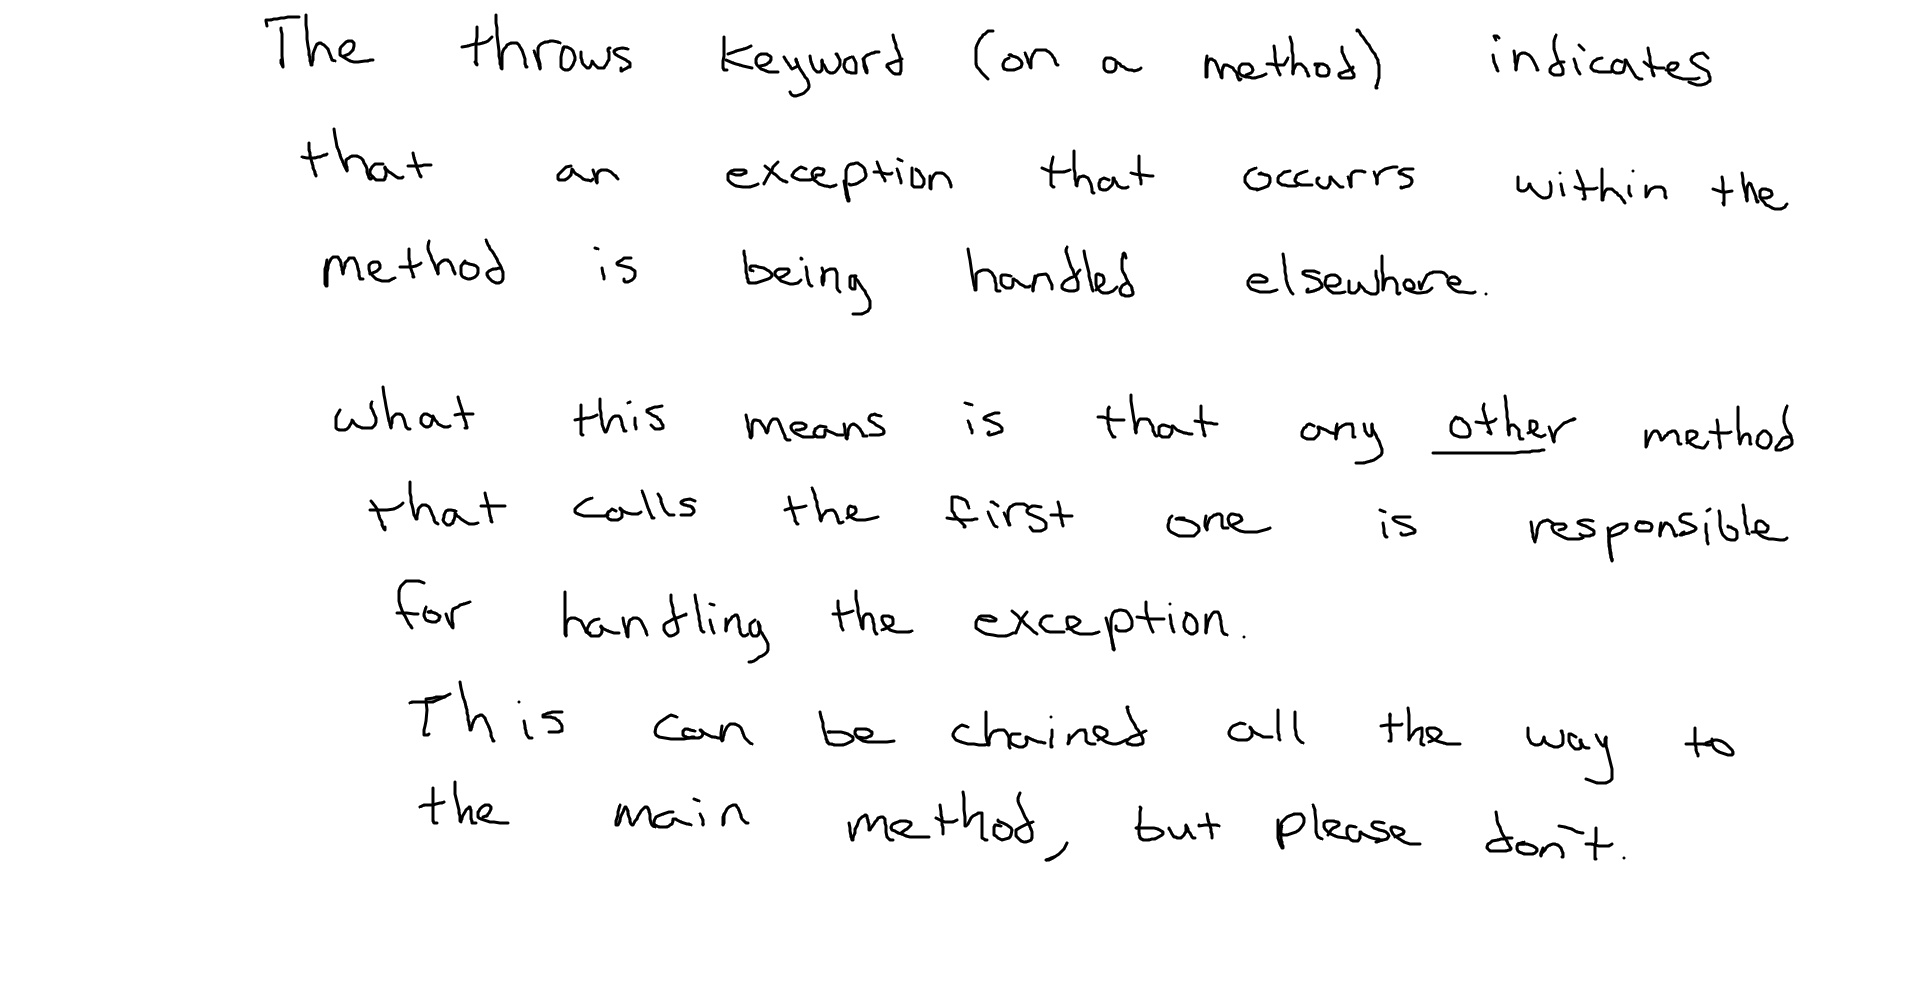 The throws keyword (on a method) indicates
that an exception that occurrs within the
method is being handled elsewhere.
what this means is that any other method
that calls the first one is responsible
for handling the exception.
This can be chained all the way to
the main method, but please don't.